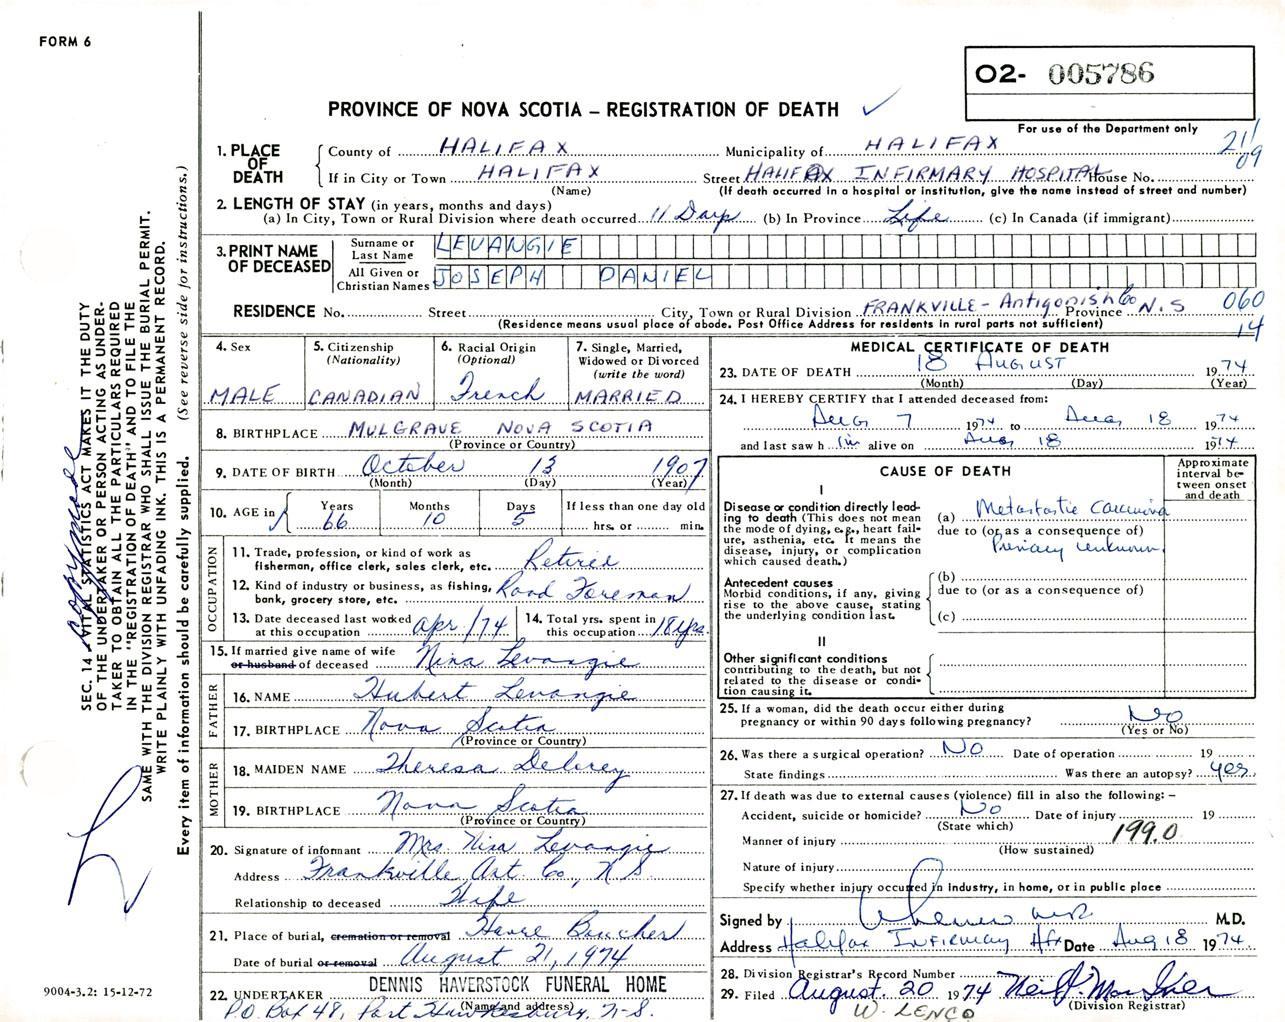 FORM 6
O2- 005786
PROVINCE OF NOVA SCOTIA – REGISTRATION OF DEATH
For use of the Department only
21/09
1. PLACE OF DEATH
County of HALIFAX Municipality of HALIFAX
If in City or Town HALIFAX Street HALIFAX INFIRMARY HOSPITAL House No.
(Name) (If death occurred in a hospital or institution, give the name instead of street and number)
2. LENGTH OF STAY (in years, months and days)
(a) In City, Town or Rural Division where death occurred 11 Days (b) In Province Life (c) In Canada (if immigrant)
3. PRINT NAME OF DECEASED
Surname or Last Name LEVANGIE
All Given or Christian Names JOSEPH DANIEL
RESIDENCE No. Street City, Town or Rural Division FRANKVILLE - Antigonish Co Province N.S 060
(Residence means usual place of abode. Post Office Address for residents in rural parts not sufficient) 14
4. Sex MALE
5. Citizenship (Nationality) CANADIAN
6. Racial Origin (Optional) French
7. Single, Married, Widowed or Divorced (write the word) MARRIED
8. BIRTHPLACE MULGRAVE NOVA SCOTIA
(Province or Country)
9. DATE OF BIRTH October 13 1907
(Month) (Day) (Year)
10. AGE in Years 66 Months 10 Days 5 If less than one day old hrs. or min.
OCCUPATION
11. Trade, profession, or kind of work as fisherman, office clerk, sales clerk, etc. Retired
12. Kind of industry or business, as fishing, bank, grocery store, etc. Road Foreman
13. Date deceased last worked at this occupation Apr/74
14. Total yrs. spent in this occupation 18 yrs.
15. If married give name of wife or husband of deceased Nina Levangie
FATHER
16. NAME Hubert Levangie
17. BIRTHPLACE Nova Scotia
(Province or Country)
MOTHER
18. MAIDEN NAME Theresa Delorey
19. BIRTHPLACE Nova Scotia
(Province or Country)
20. Signature of informant Mrs. Nina Levangie
Address Frankville Ant. Co., N.S.
Relationship to deceased Wife
21. Place of burial, cremation or removal Havre Boucher
Date of burial or removal August 21, 1974
22. UNDERTAKER DENNIS HAVERSTOCK FUNERAL HOME
(Name and address)
P.O. Box 48, Port Hawkesbury, N-S.
MEDICAL CERTIFICATE OF DEATH
23. DATE OF DEATH 18 AUGUST 1974
(Month) (Day) (Year)
24. I HEREBY CERTIFY that I attended deceased from:
Aug 7 1974 to Aug 18 1974
and last saw h im alive on Aug 18 1974
CAUSE OF DEATH
Approximate interval between onset and death
I
Disease or condition directly leading to death (This does not mean the mode of dying, e.g., heart failure, asthenia, etc. It means the disease, injury, or complication which caused death.)
(a) Metastatic Carcinoma
due to (or as a consequence of)
Primary unknown.
Antecedent causes
Morbid conditions, if any, giving rise to the above cause, stating the underlying condition last.
(b)
due to (or as a consequence of)
(c)
II
Other significant conditions contributing to the death, but not related to the disease or condition causing it.
25. If a woman, did the death occur either during pregnancy or within 90 days following pregnancy? No
(Yes or No)
26. Was there a surgical operation? No Date of operation 19
State findings Was there an autopsy? yes
27. If death was due to external causes (violence) fill in also the following: –
Accident, suicide or homicide? No Date of injury 19
(State which)
Manner of injury 199.0
(How sustained)
Nature of injury
Specify whether injury occurred in industry, in home, or in public place
Signed by M.D.
Address Halifax Infirmary Hfx Date Aug 18 1974
28. Division Registrar's Record Number
29. Filed August 20 1974
(Division Registrar)
W. LENCO
SEC. 14 VITAL STATISTICS ACT MAKES IT THE DUTY
OF THE UNDERTAKER OR PERSON ACTING AS UNDER-
TAKER TO OBTAIN ALL THE PARTICULARS REQUIRED
IN THE "REGISTRATION OF DEATH" AND TO FILE THE
SAME WITH THE DIVISION REGISTRAR WHO SHALL ISSUE THE BURIAL PERMIT.
WRITE PLAINLY WITH UNFADING INK. THIS IS A PERMANENT RECORD.
Every item of information should be carefully supplied. (See reverse side for instructions.)
9004-3.2: 15-12-72